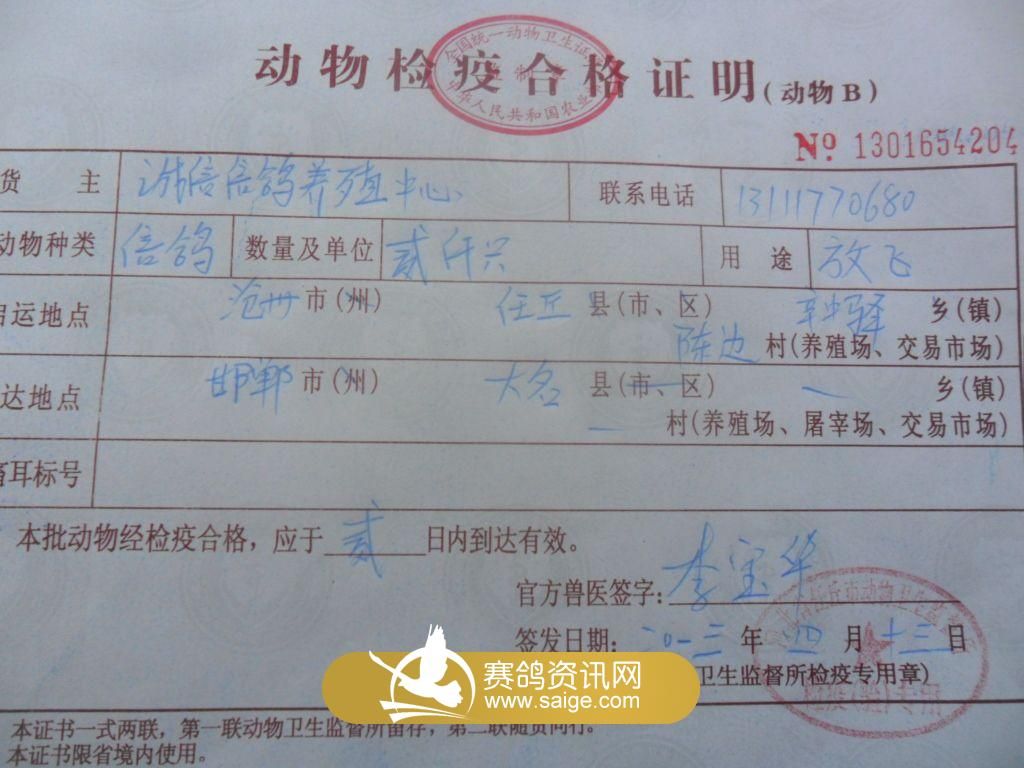 动物检疫合格证明(动物B)
全国统一动物卫生证
中华人民共和国农业
No 1301654204
货 主 诚信信鸽养殖中心 联系电话 13111770680
动物种类 信鸽 数量及单位 贰仟只 用途 放飞
启运地点 沧州 市(州) 任丘 县(市、区) 辛中驿 乡(镇)
陈边 村(养殖场、交易市场)
达地点 邯郸 市(州) 大名 县(市、区) 乡(镇)
村(养殖场、屠宰场、交易市场)
畜耳标号
本批动物经检疫合格,应于 贰 日内到达有效。
官方兽医签字: 李宝华
签发日期: 二0一三 年 四 月 十三 日
卫生监督所检疫专用章)
赛鸽资讯网
www.saige.com
本证书一式两联,第一联动物卫生监督所留存,第二联随货同行。
本证书限省境内使用。